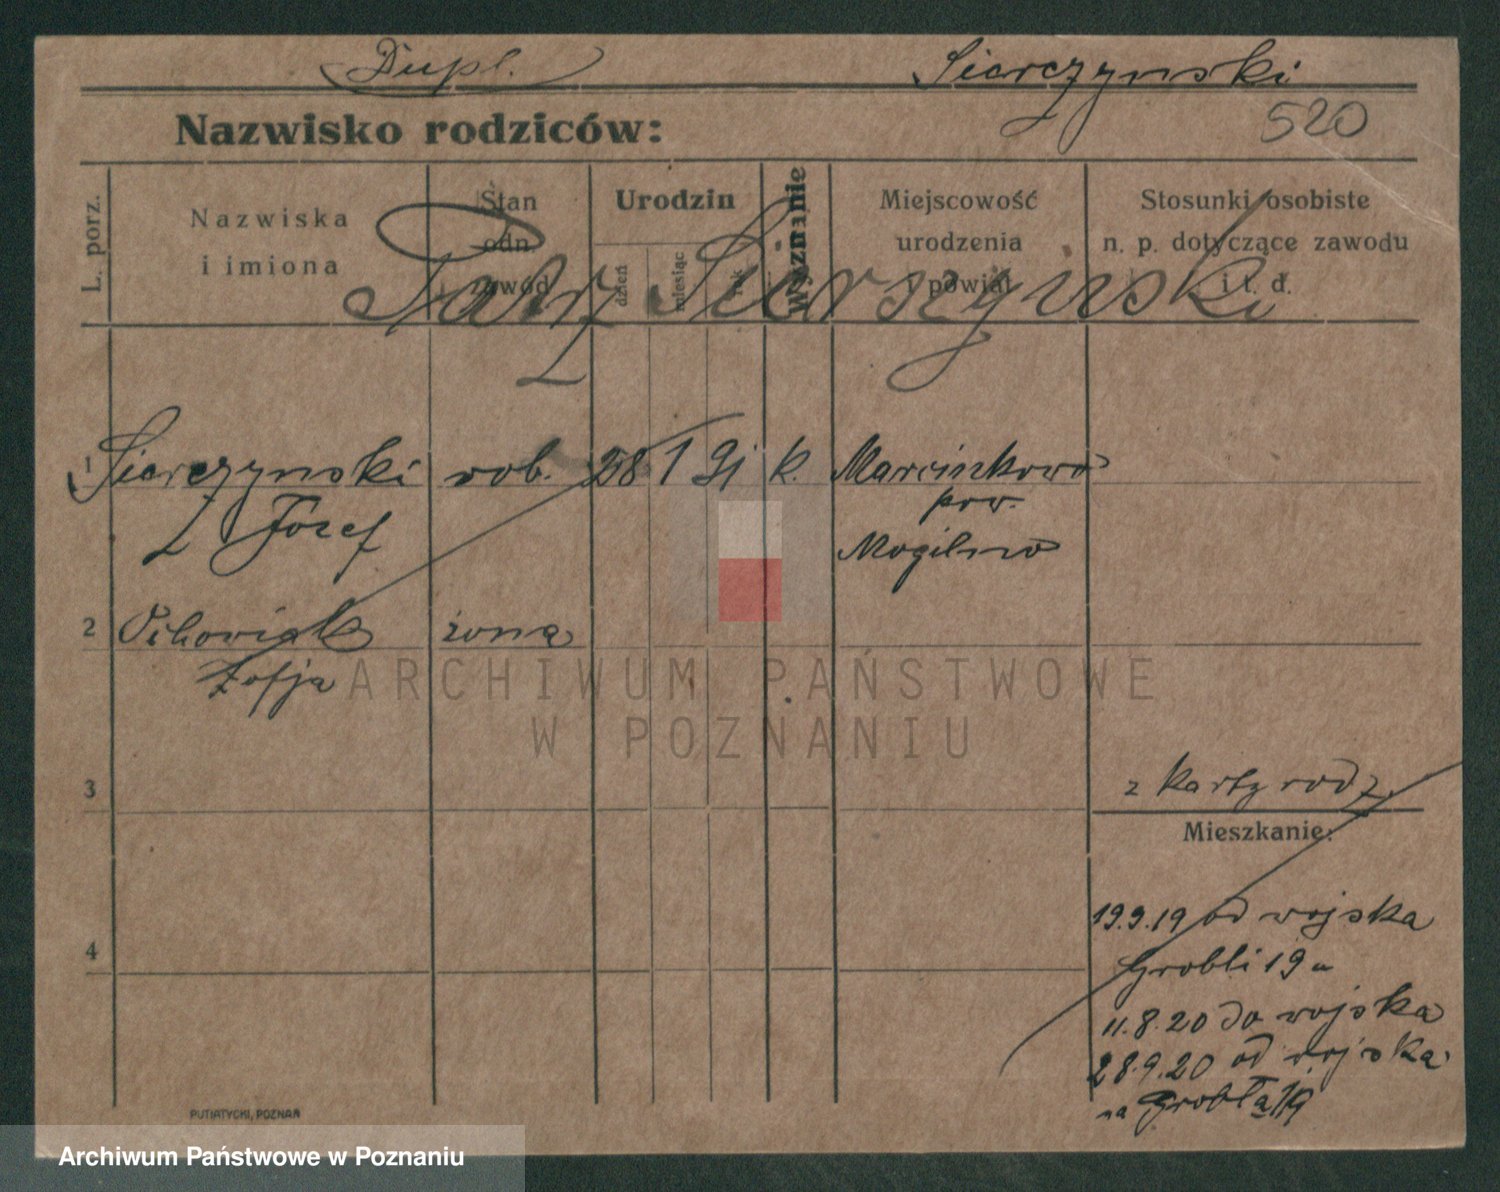 Dupl. Siarczynski
Nazwisko rodziców: 520
L. porz.
Nazwiska
i imiona
Stan
odn.
zawód
Urodzin
dzień
miesiąc
rok
Wyznanie
Miejscowość
urodzenia
i powiat
Stosunki osobiste
n. p. dotyczące zawodu
i t. d.
Patrz Siarzyński
1 Siarczynski rob. 28 1 91 k. Marcinkowo
Józef pow.
Mogilno
2 żona
Zofja
3 z karty rodz.
Mieszkanie:
19.9.19 od wojska
Grobli 19a
4
11.8.20 do wojska
28.9.20 od wojska
na Grobla 19
PUTIATYCKI, POZNAŃ
ARCHIWUM PAŃSTWOWE
W POZNANIU
Archiwum Państwowe w Poznaniu